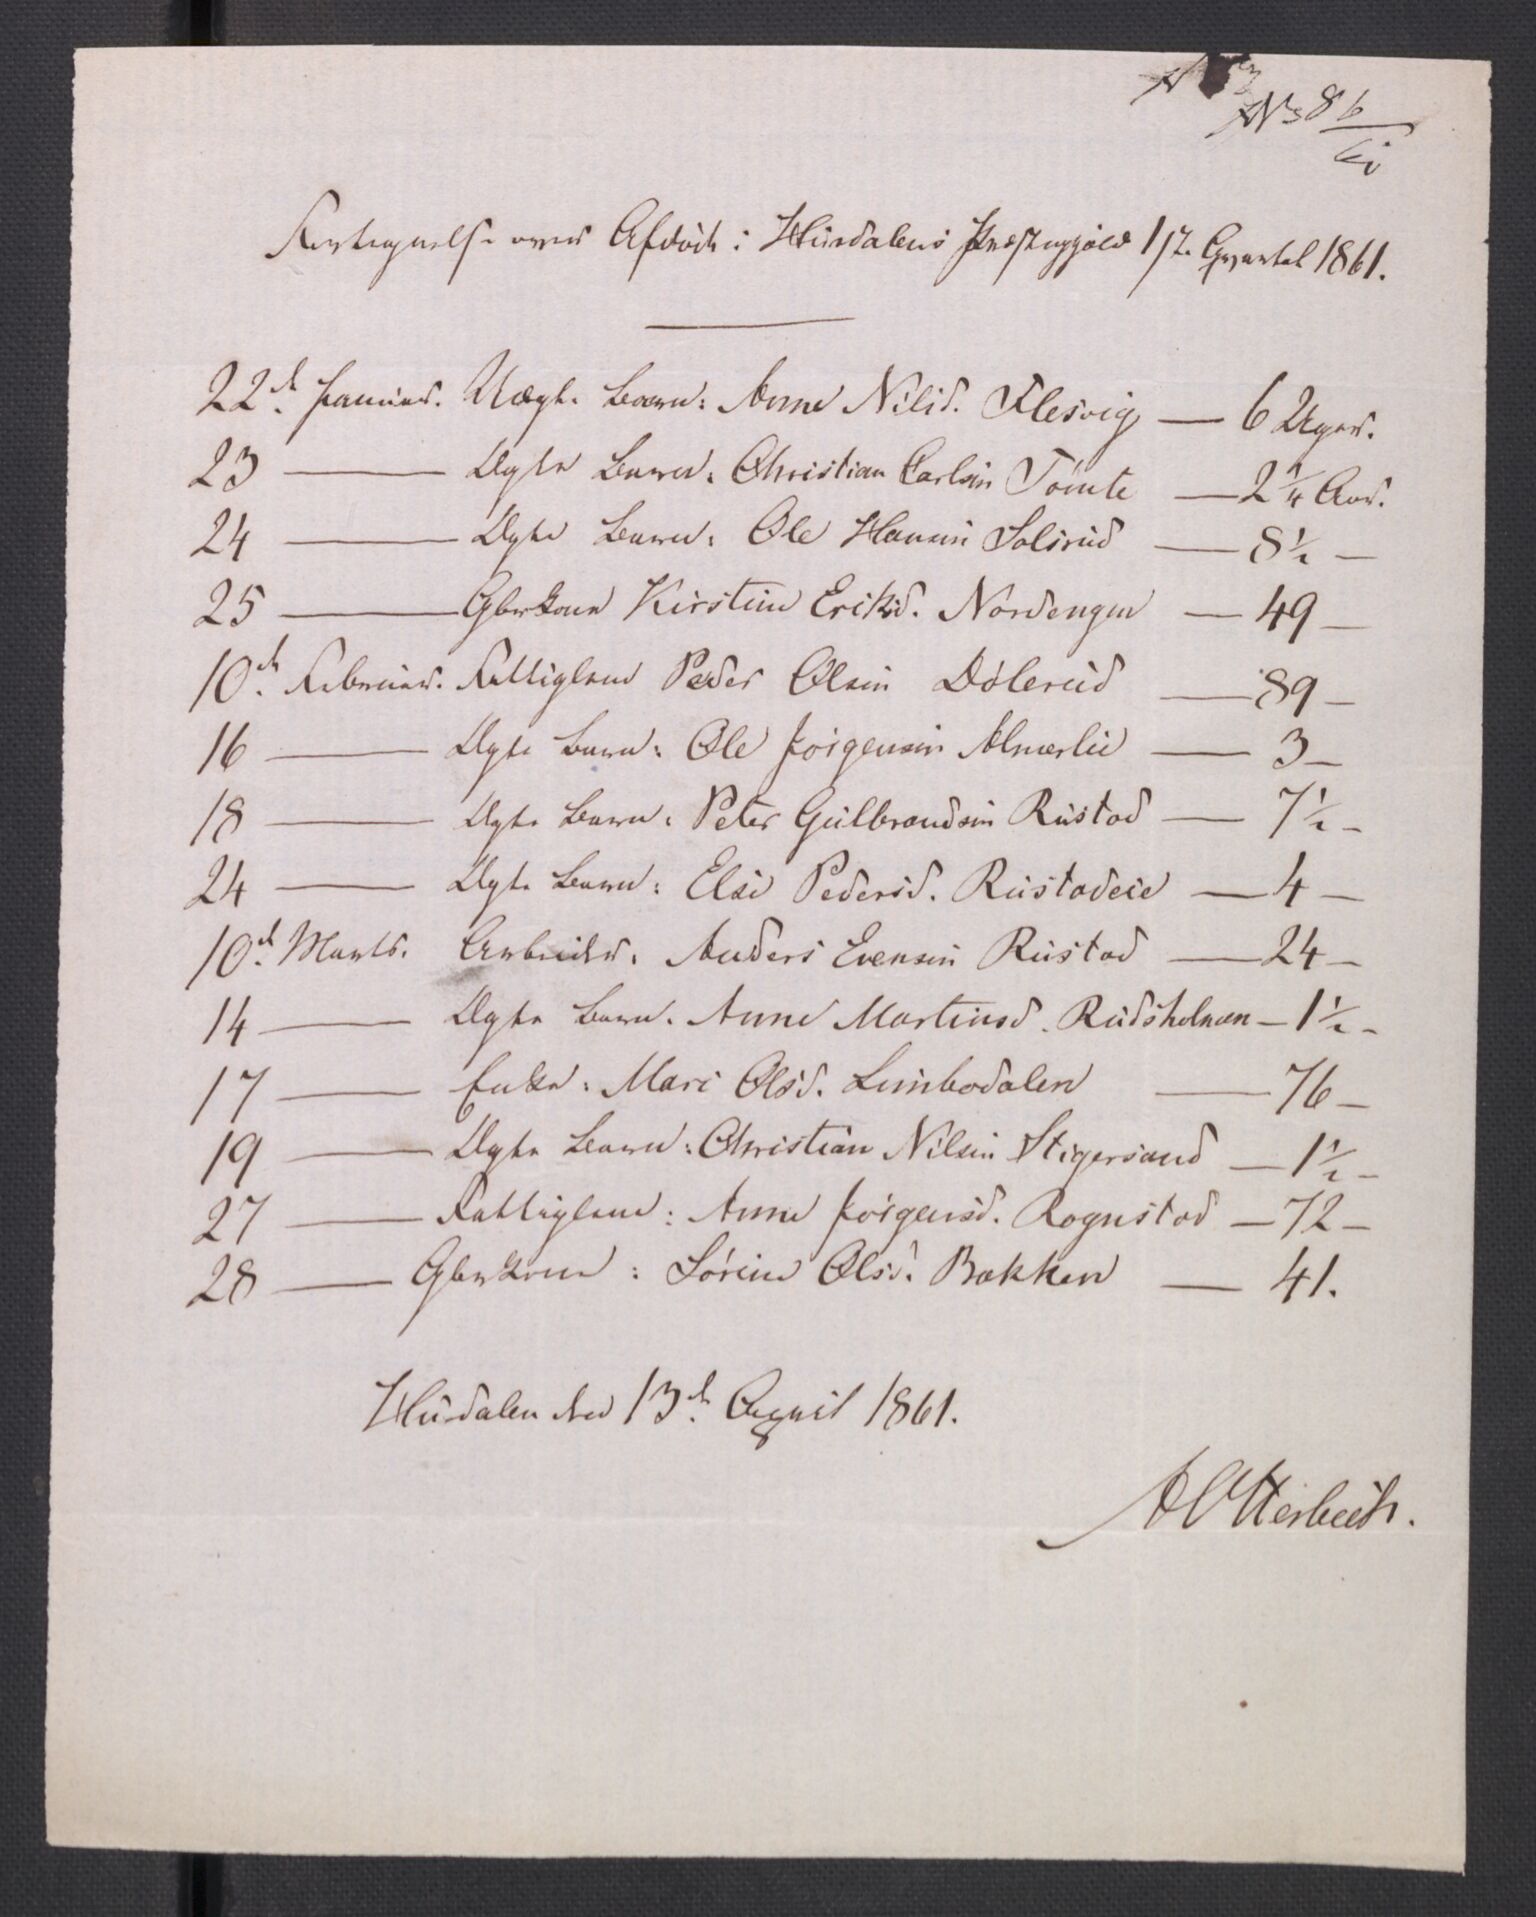 No 86
Fortegnelse over Afdöde i Hurdalens Præstegjæld 1ste Qvartal 1861.
22de Januar. Uægt. Barn: Anne Nilsd. Flesvig — 6 Uger.
23 — Ægte Barn: Christian Carlsen Tömte — 2 1/4 Aar.
24 — Ægte Barn: Ole Hansen Solsrud — 8 1/2 —
25 — Gbrkone Kirstine Eriksd. Nordengen — 49 —
10de Februar. Fattiglem Peder Olsen Dölerud — 89 —
16 — Ægte Barn: Ole Jörgensen Almerlie — 3 —
18 — Ægte Barn: Peter Gulbrandsen Rustad — 7 1/2 —
24 — Ægte Barn: Else Pedersd. Rustadeie — 4 —
10de Marts. Arbeider: Anders Evensen Rustad — 24 —
14 — Ægte Barn: Anne Martinsd. Rudsholmen — 1 1/2 —
17 — Enke: Mari Olsd. Limbodalen — 76 —
19 — Ægte Barn: Christian Nilsen Stigersand — 1 1/2 —
27 — Fattiglem: Anne Jörgensd. Rognstad — 72 —
28 — Gbrkone: Sörine Olsd. Bakken — 41.
Hurdalen den 13de August 1861.
A Otterbech.